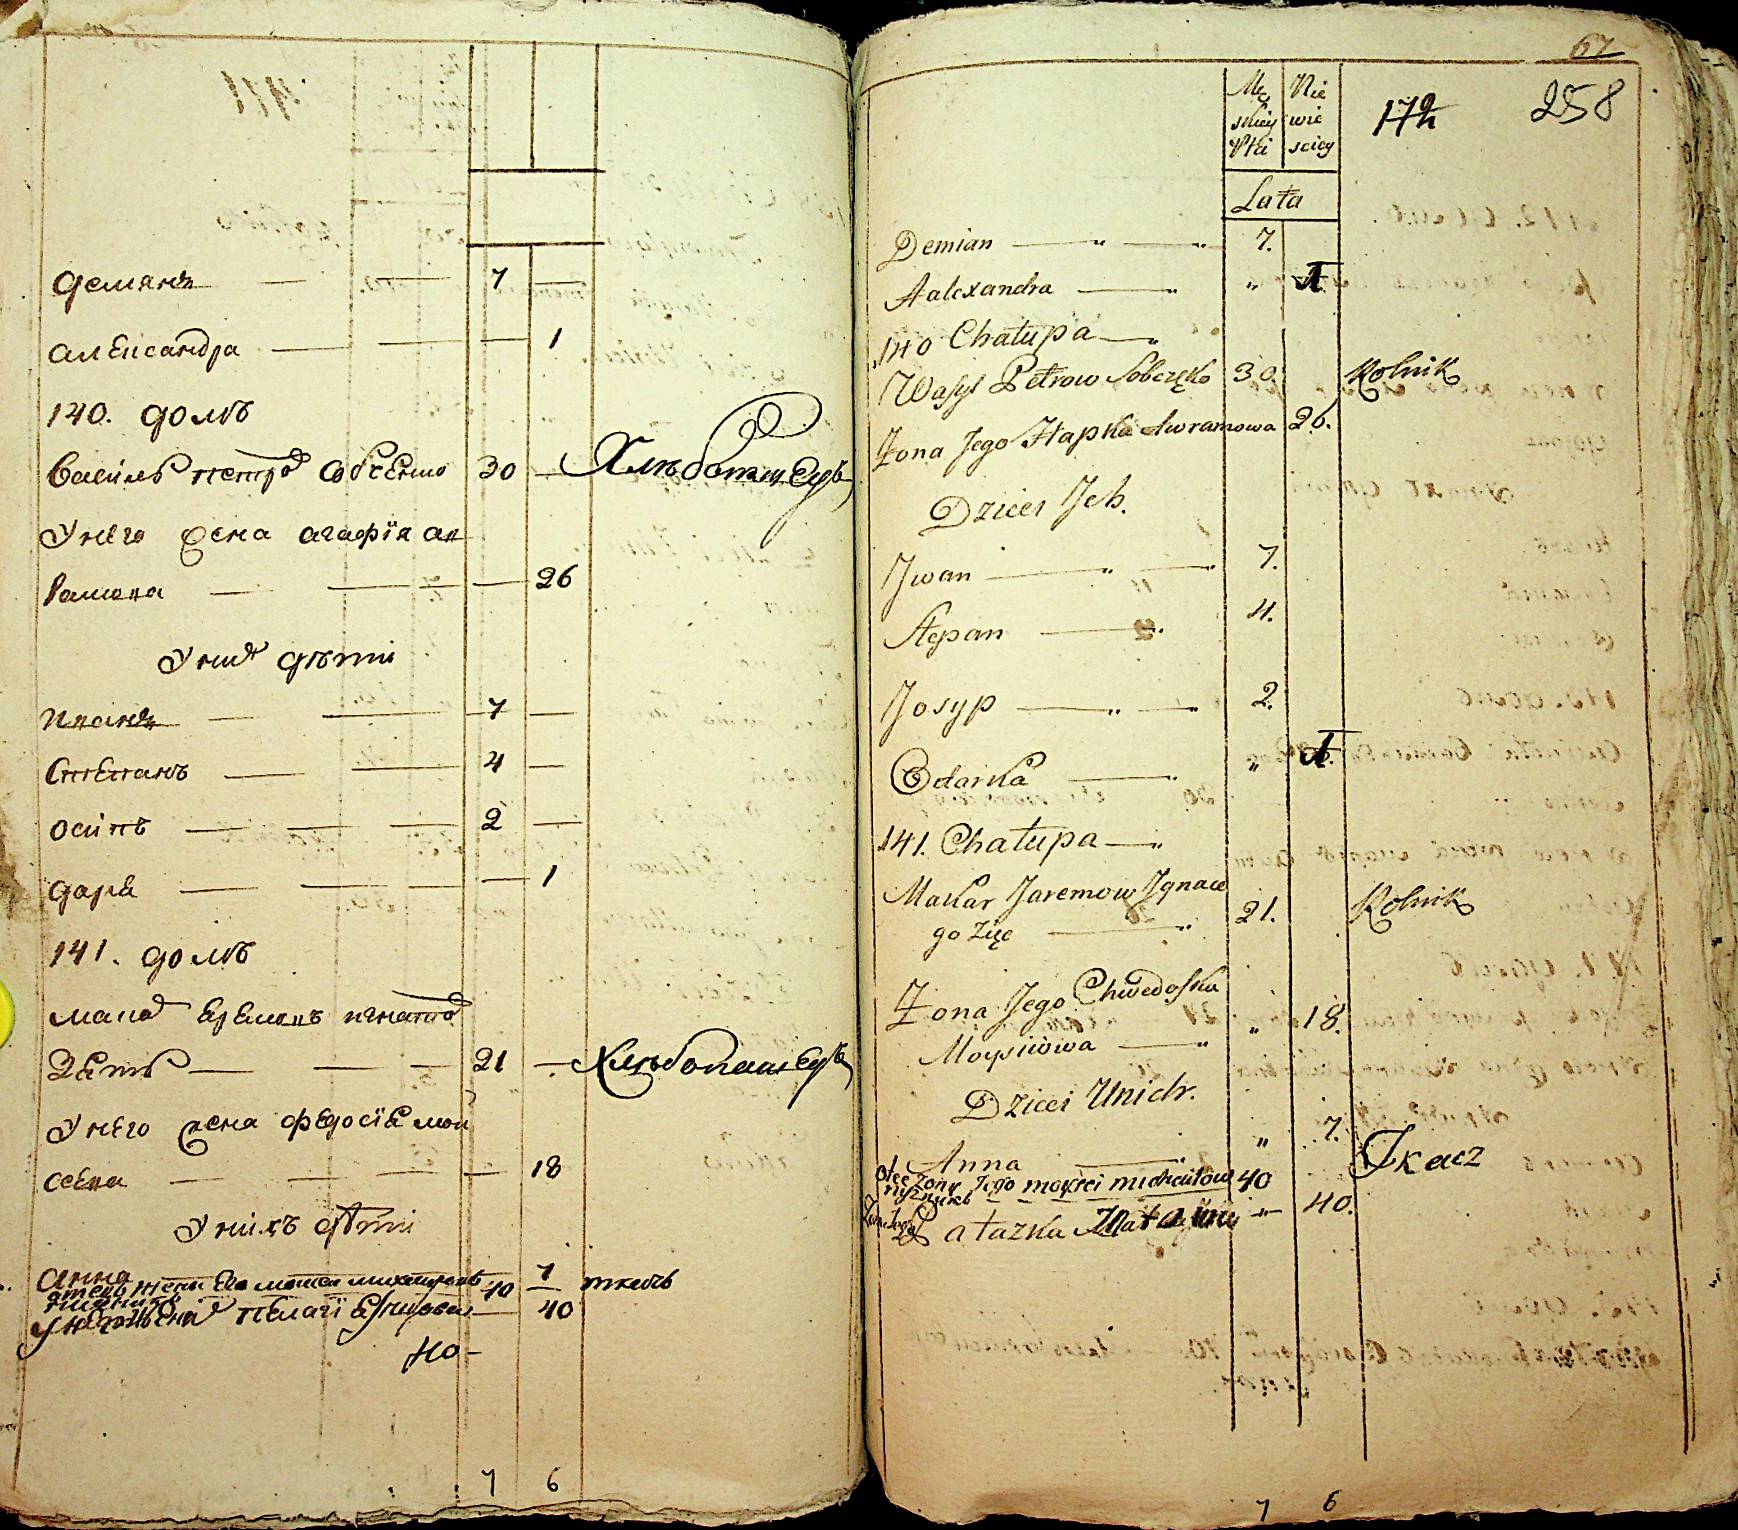 Демянъ — — 7 —
Александра — — — 1
140. домъ
Василь Петровъ Собченко 30 — Хлѣбопашецъ
У него жена Агафія Ав
рамова — — — 26
У нихъ дѣти
Иванъ — — 7 —
Степанъ — — 4 —
Осипъ — — — 2 —
Дарія — — — — 1
141. домъ
Макаръ Еремовъ Игнатовъ
Зять — — — 21 — Хлѣбопашецъ
У него жена Федосія Мои
сеева — — — — 18
У нихъ дѣти
Анна 1
отецъ жены его Мойсей 40 — ткачъ
У него жена Пелагія 40
40 -
7 6
67
Mę Nie
skiey wie
Płci sciey
172 258
Lata
Demian — " — " 7.
Aalexandra — " " 1
140 Chałupa — "
Wasyl Petrow Sobczęko 30 Rolnik
Żona Jego Hapka Awramowa 26.
Dzieci Jch.
Jwan — " — " 7.
Stepan — " 4.
Josyp — " — " 2.
Odarka — " " 1.
141. Chałupa — "
Makar Jaremow Jgnace
go Zięc — " 21. Rolnik
Żona Jego Chwedoska
Moysiiowa — " " 18.
Dzieci Unich.
Anna — " " 7.
Otec Żony Jego 40 Tkacz
Żona Jego Palazka " 40.
7 6